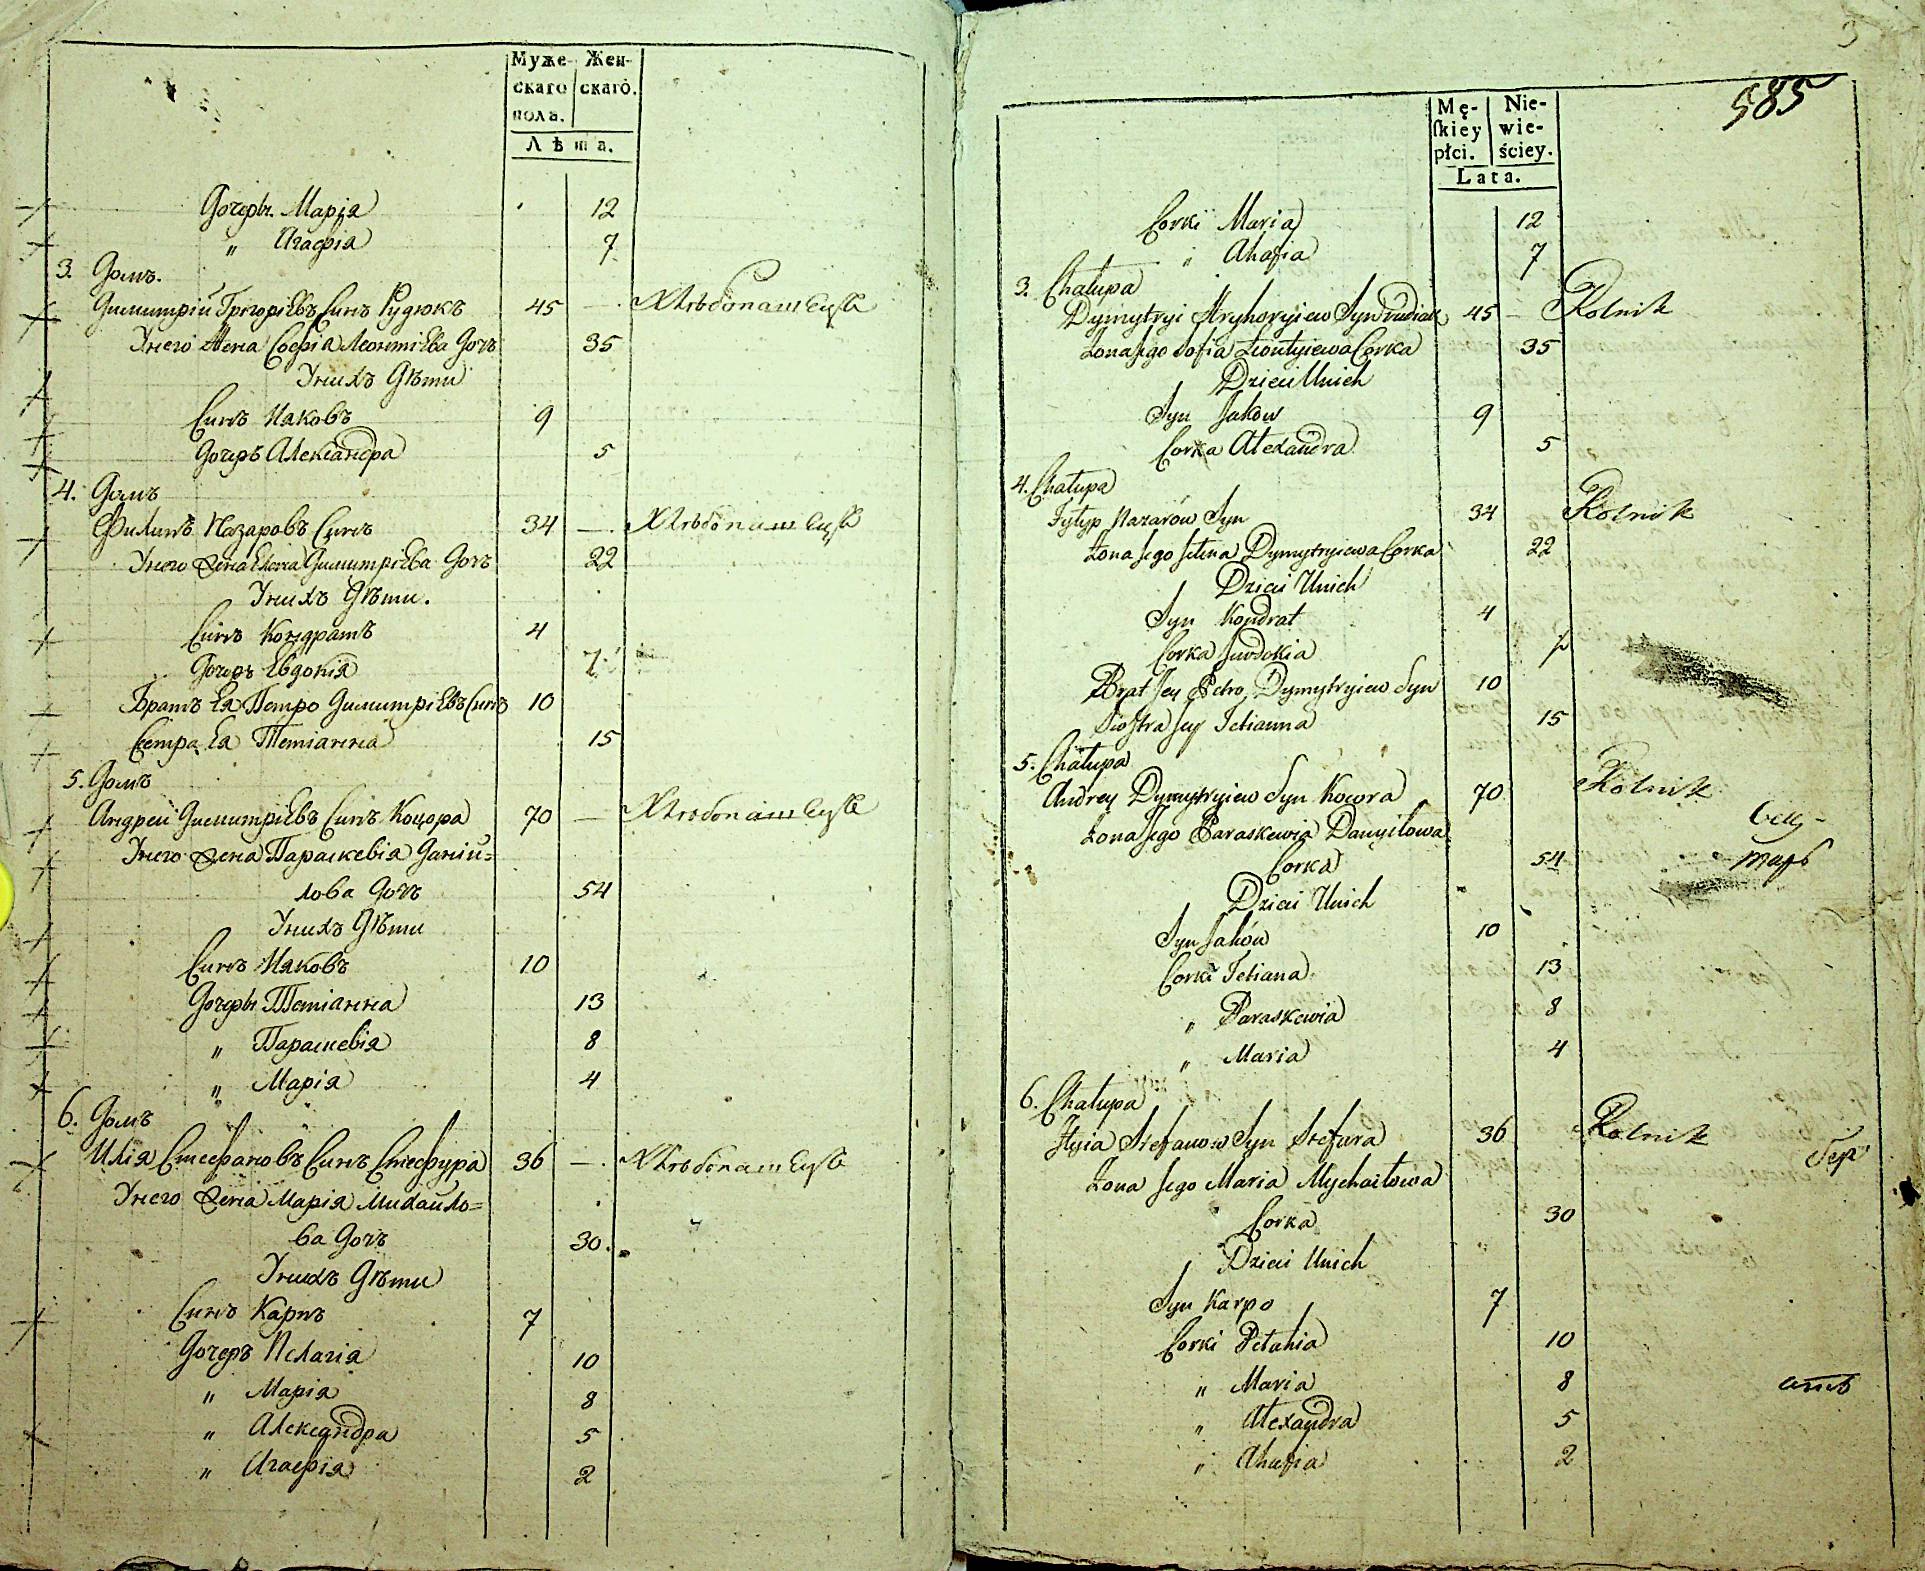 Муже- Жен-
скаго скаго.
полъ.
Лѣта.
Дочеръ. Марія 12
„ Агафія 7
3. Домъ.
Димитрій Григоріевъ Синъ Рудюкъ 45 — Хлѣбопашецъ
Унего Жена Софія Леонтіева Дочъ 35
Унихъ Дѣти
Синъ Іаковъ 9
Дочеръ Александра 5
4. Домъ
Филипъ Назаровъ Синъ 34 — Хлѣбопашецъ
Унего Жена Елена Димитріева Дочъ 22
Унихъ Дѣти.
Синъ Кондратъ 4
Дочеръ Евдокія
Братъ Ея Петро Димитріевъ Синъ 10
Сестра Ея Тетіанна 15
5. Домъ
Андрей Димитріевъ Синъ Коцора 70 — Хлѣбопашецъ
Унего Жена Параскевія Даній=
лова Дочъ 54
Унихъ Дѣти
Синъ Іаковъ 10
Дочеры Тетіанна 13
„ Параскевія 8
„ Марія 4
6. Домъ
Илія Стефановъ Синъ Стефура 36 — Хлѣбопашецъ
Унего Жена Марія Михайло=
ва Дочъ 30.
Унихъ Дѣти
Синъ Карпъ 7
Дочеръ Пелагія 10
„ Марія 8
„ Александра 5
„ Агафія 2
3
585
Mę- Nie-
ſkiey wie-
płci. ściey.
Lata.
Corki Maria 12
„ Ahafia 7
3. Chałupa
Dymytryi Hryhoryiew Syn Rudiuk 45 — Rolnik
Zona Jego Sofia Leontyiewa Corka 35
Dzieci Unich
Syn Jakow 9
Corka Alexandra 5
4. Chałupa
Fylyp Nazarów Syn 34 Rolnik
Zona Jego Jelena Dymytryiewa Corka 22
Dzieci Unich
Syn Kondrat 4
Corka Jewdokia
Brat Jey Petro Dymytryiew Syn 10
Siostra Jey Tetianna 15
5. Chałupa
Andrey Dymytryiew Syn Kocora 70 Rolnik
Zona Jego Paraskewia Danyiłowa
Corka 54
Dzieci Unich
Syn Jaków 10
Corki Tetiana 13
„ Paraskewia 8
„ Maria 4
6. Chałupa
Jlyia Stefanow Syn Stefura 36 Rolnik
Zona Jego Maria Mychaiłowa
Corka 30
Dzieci Unich
Syn Karpo 7
Corki Pelahia 10
„ Maria 8
„ Alexandra 5
„ Ahafia 2